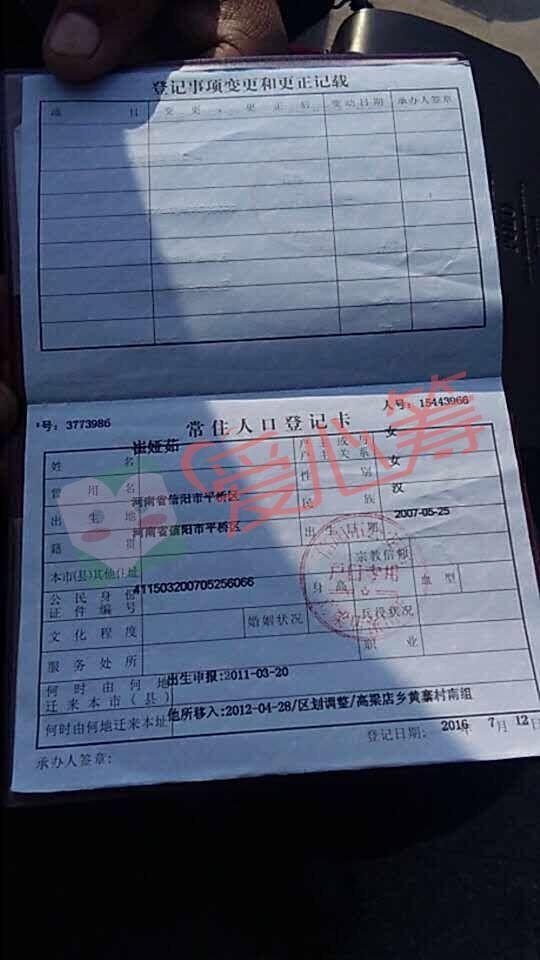 登记事项变更和更正记载
项 目 变更、更正后 变动日期 承办人签章
号：3773986 人号：15443966
常住人口登记卡
姓名 崔娅茹 户主或与户主关系 女
曾用名 性别 女
出生地 河南省信阳市平桥区 民族 汉
籍贯 河南省信阳市平桥区 出生日期 2007-05-25
本市(县)其他住址 宗教信仰
公民身份证件编号 411503200705256066 身高 血型
文化程度 婚姻状况 兵役状况
服务处所 职业
何时由何地迁来本市(县) 出生申报:2011-03-20
何时由何地迁来本址 他所移入:2012-04-28/区划调整/高粱店乡黄寨村南组
登记日期: 2016年 7月 12日
承办人签章:
户口专用
爱心筹